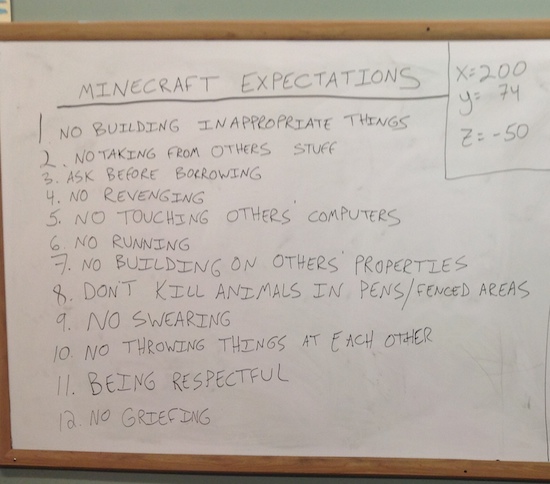 MINECRAFT EXPECTATIONS
1 NO BUILDING INAPPROPRIATE THINGS
2. NO TAKING FROM OTHERS STUFF
3. ASK BEFORE BORROWING
4. NO REVENGING
5. NO TOUCHING OTHERS' COMPUTERS
6. NO RUNNING
7. NO BUILDING ON OTHERS' PROPERTIES
8. DON'T KILL ANIMALS IN PENS/FENCED AREAS
9. NO SWEARING
10. NO THROWING THINGS AT EACH OTHER
11. BEING RESPECTFUL
12. NO GRIEFING
X=200
y= 74
Z=-50